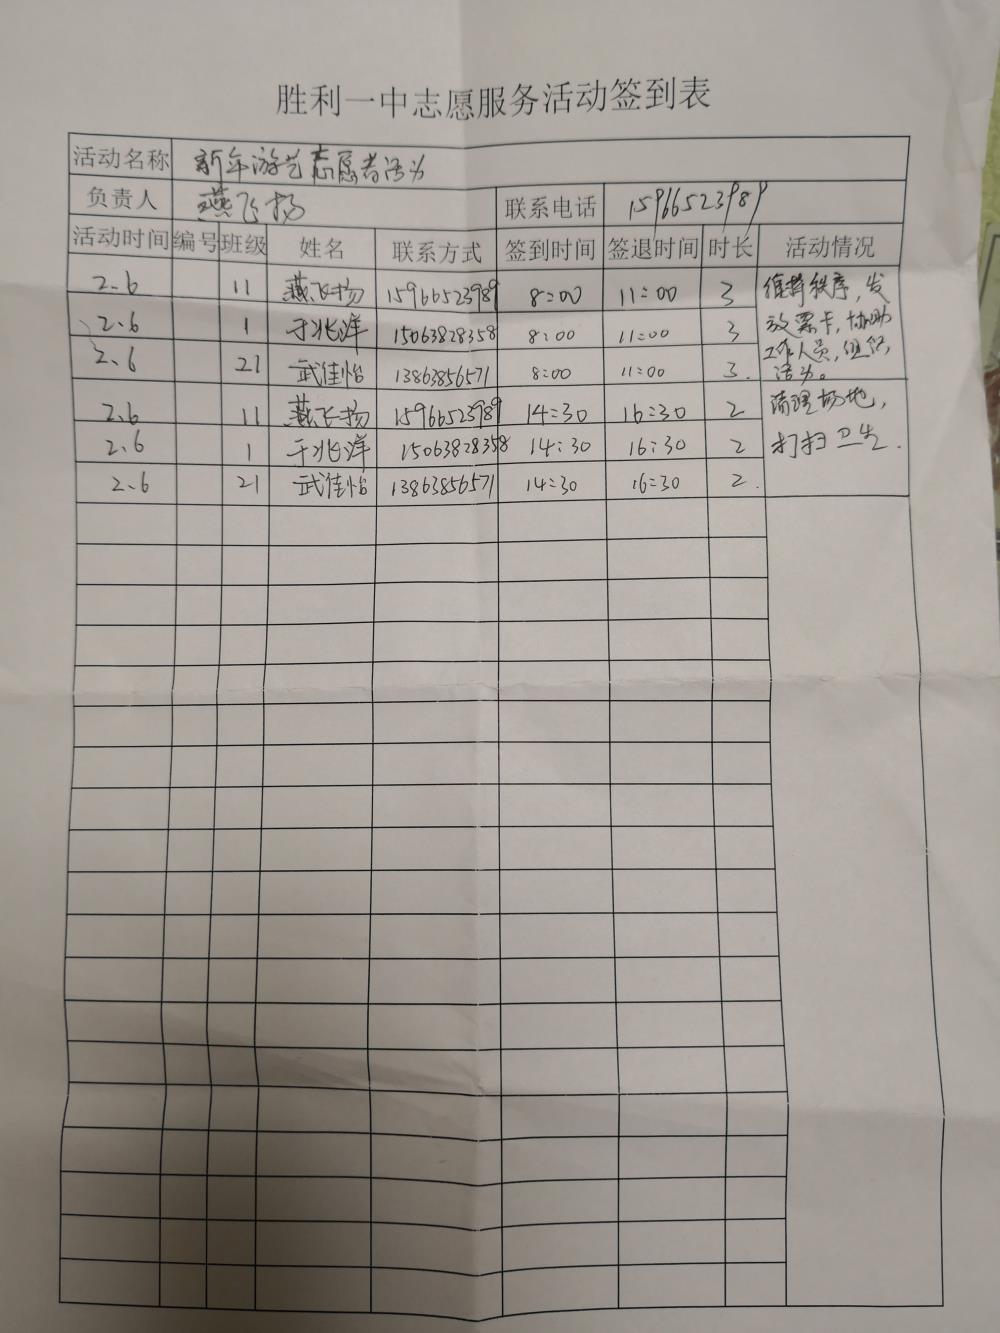 胜利一中志愿服务活动签到表
活动名称 新年游艺志愿者活动
负责人 燕飞扬 联系电话 15966523989
活动时间 编号 班级 姓名 联系方式 签到时间 签退时间 时长 活动情况
2.6 11 燕飞扬 15966523989 8:00 11:00 3 维持秩序,发
2.6 1 于兆洋 15063828358 8:00 11:00 3 放票卡,协助
工作人员,组织
2.6 21 武佳怡 13863856571 8:00 11:00 3. 活动。
2.6 11 燕飞扬 15966523989 14:30 16:30 2 清理场地,
2.6 1 于兆洋 15063828358 14:30 16:30 2 打扫卫生.
2.6 21 武佳怡 13863856571 14:30 16:30 2.